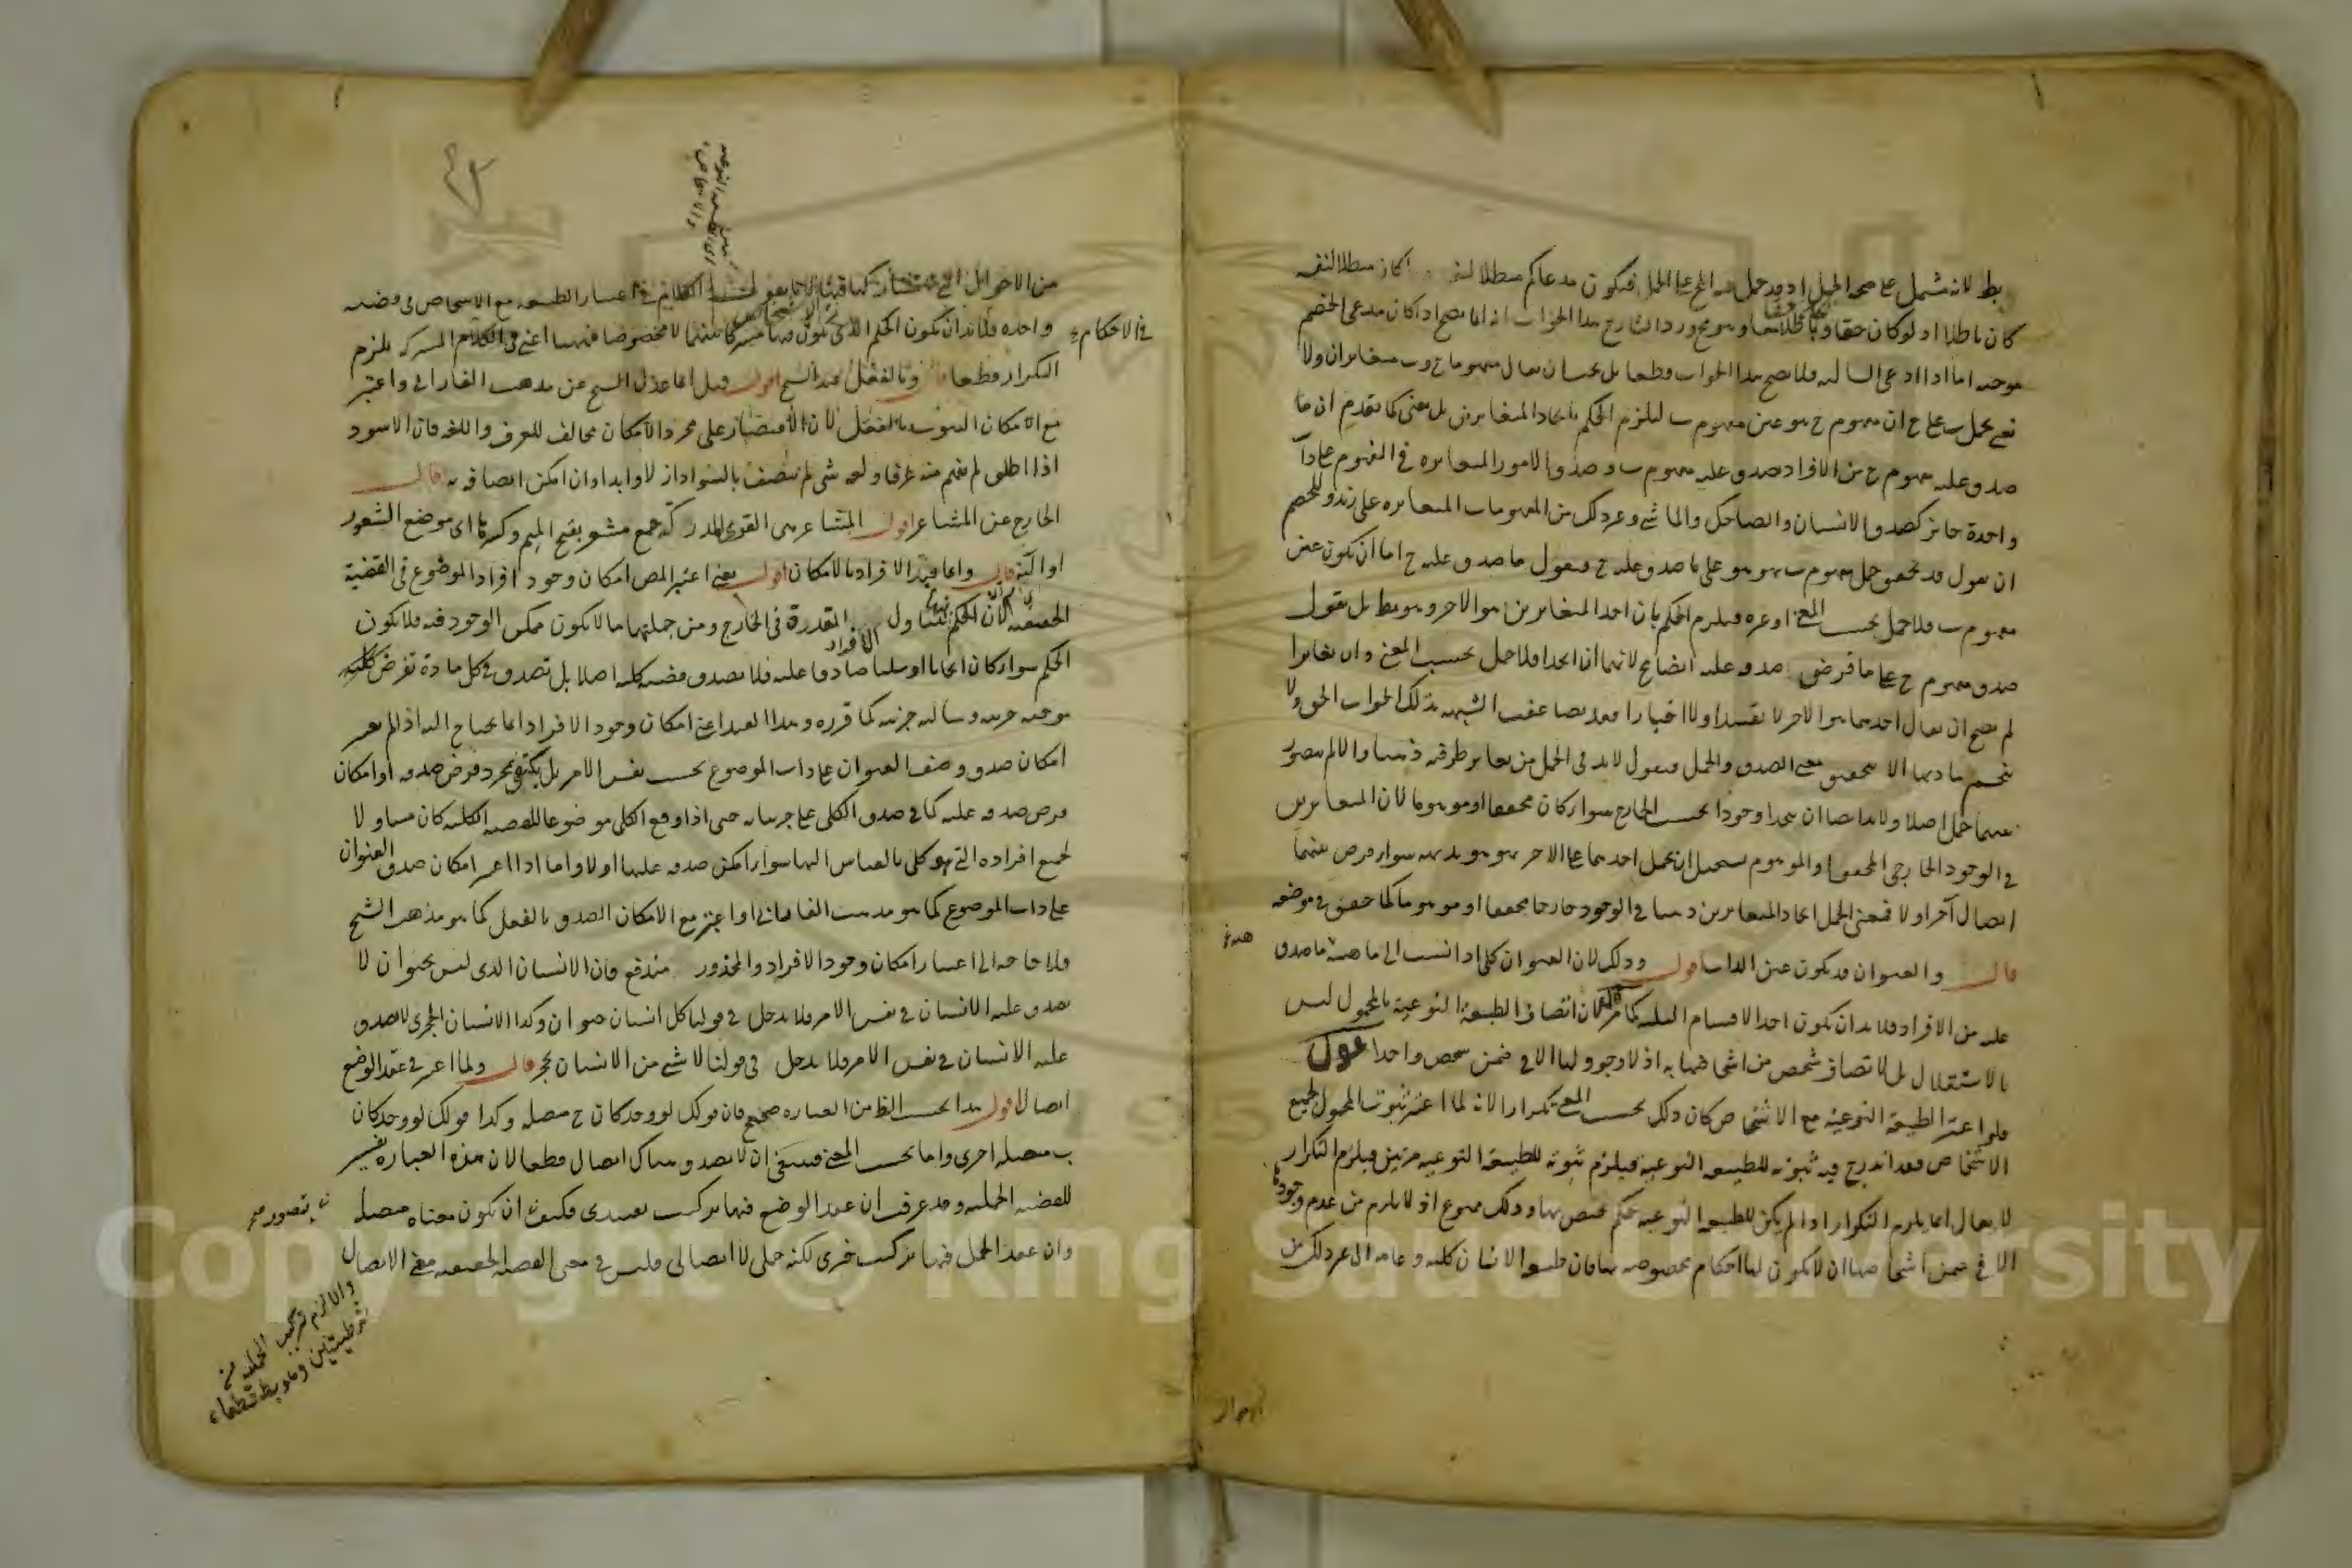 بط لانه يشتمل على صحة الحمل اذ قد حمل فيه على الحمل فيكون مدعاكم مبطلا لنفسه كان مبطلا لنفسه
كان باطلا اذ لو كان حقا وهو مح ورد الشارح هذا الجواب انه انما يصح اذا كان مدعى الخصم
موجبة اما اذا ادعى السالبة فلا يصح هذا الجواب قطعا بل يجب ان يقال مفهوما ج وب متغايران ولا
نعني بحمل ب على ج ان مفهوم ج هو عين مفهوم ب ليلزم الحكم باتحاد المتغايرين بل نعني كما تقدم ان ما
صدق عليه مفهوم ج من الافراد صدق عليه مفهوم ب وصدق الامور المتغايرة في المفهوم على ذات
واحدة جائز كصدق الانسان والضاحك والماشي وغير ذلك من المفهومات المتغايرة على زيد وللخصم
ان يقول قد تحقق حمل مفهوم ب بهو هو على ما صدق عليه ج فنقول ما صدق عليه ج اما ان يكون عين
مفهوم ب فلا حمل بحسب المعنى او غيره فيلزم الحكم بان احد المتغايرين هو الاخر وهو بط بل نقول
صدق مفهوم ج على ما فرض صدق عليه ايضا مح لانهما ان اتحدا فلا حمل بحسب المعنى وان تغايرا
لم يصح ان يقال احدهما هو الاخر لا تقييدا ولا اخبارا فقد تضاعف الشبهة بذلك الجواب الحق ولا
ينحسم مادتها الا بتحقيق معنى الصدق والحمل فنقول لا بد في الحمل من تغاير طرفيه ذهنا والا لم يتصور
بينهما حمل اصلا ولا بد ايضا ان يتحدا وجودا بحسب الخارج سواء كان محققا او موهوما لان المتغايرين
في الوجود الخارجي المحقق او الموهوم يستحيل ان يحمل احدهما على الاخر بهو هو بديهة سواء فرض بينهما
اتصال آخر او لا فمعنى الحمل اتحاد المتغايرين ذهنا في الوجود خارجا محققا او موهوما كما حقق في موضعه
قال والعنوان قد يكون عين الذات اقول وذلك لان العنوان كلي اذا نسب الى ماهية ما صدق
عليه من الافراد فلا بد ان يكون احد الاقسام الثلثة كما مر قوله لان اتصاف الطبيعة النوعية بالمحمول ليس
بالاستقلال بل لاتصاف شخص من اشخاصها به اذ لا وجود لها الا في ضمن شخص واحد اقول
فلو اعتبر الطبيعة النوعية مع الاشخاص كان ذلك بحسب المعنى تكرارا لانه لما اعتبر ثبوت المحمول لجميع
الاشخاص فقد اندرج فيه ثبوته للطبيعة النوعية فيلزم ثبوته للطبيعة النوعية مرتين فيلزم التكرار
لا يقال انما يلزم التكرار اذا لم يكن للطبيعة النوعية حكم مختص بها وذلك ممنوع اذ لا يلزم من عدم وجودها
الا في ضمن اشخاصها ان لا يكون لها احكام مخصوصة بها فان طبيعة الانسان كلية وعامة الى غير ذلك من
من الاحوال التي لا يشاركها فيها الاشخاص لانا نقول الكلام في اعتبار الطبيعة مع الاشخاص في قضية
واحدة فلا بد ان يكون الحكم الذي يكون فيها مشتركا بينهما لا مخصوصا اعني في الكلام المشترك يلزم
في الاحكام
التكرار قطعا قال وبالفعل عند الشيخ اقول قيل انما عدل الشيخ عن مذهب الفارابي واعتبر
مع الامكان الثبوت بالفعل لان الاقتصار على مجرد الامكان مخالف للعرف واللغة فان الاسود
اذا اطلق لم يفهم منه عرفا ولغة شيء لم يتصف بالسواد ازلا وابدا وان امكن اتصافه به قال
الخارج عن المشاعر اقول المشاعر هي القوى المدركة جمع مشعر بفتح الميم وكسرها اي موضع الشعور
او آلته قال وانما قيد الافراد بالامكان اقول يعني اعتبر المص امكان وجود افراد الموضوع في القضية
الحقيقية لان الحكم فيها يتناول الافراد المقدرة في الخارج ومن جملتها ما لا يكون ممكن الوجود فيه فلا يكون
الحكم سواء كان ايجابا او سلبا صادقا عليه فلا تصدق قضية كلية اصلا بل تصدق في كل مادة تفرض كلية
موجبة جزئية وسالبة جزئية كما قرره وهذا القيد اعني امكان وجود الافراد انما يحتاج اليه اذا لم يعتبر
امكان صدق وصف العنوان على ذات الموضوع بحسب نفس الامر بل يكتفى بمجرد فرض صدقه او امكان
فرض صدقه عليه كما في صدق الكلي على جزئياته حتى اذا وقع الكلي موضوعا للقضية الكلية كان متناولا
لجميع افراده التي هو كلي بالقياس اليها سواء امكن صدقه عليها او لا واما اذا اعتبر امكان صدق العنوان
على ذات الموضوع كما هو مذهب الفارابي او اعتبر مع الامكان الصدق بالفعل كما هو مذهب الشيخ
فلا حاجة الى اعتبار امكان وجود الافراد والمحذور مندفع فان الانسان الذي ليس بحيوان لا
يصدق عليه الانسان في نفس الامر فلا يدخل في قولنا كل انسان حيوان وكذا الانسان الحجري لا يصدق
عليه الانسان في نفس الامر فلا يدخل في قولنا لا شيء من الانسان بحجر قال ولما اعتبر في عقد الوضع
اتصال اقول هذا بحسب الظ من العبارة صحيح فان قولك لو وجد كان ج متصلة وكذا قولك لو وجد كان
ب متصلة اخرى واما بحسب المعنى فينبغي ان لا يصدق هناك اتصال قطعا لان هذه العبارة تفسير
للقضية الحملية وقد عرفت ان عقد الوضع فيها تركيب تقييدي فكيف ان يكون معناه متصلة
يتصور
وان عقد الحمل فيها تركيب خبري لكنه حملي لا اتصالي فليس في معنى القضية الحقيقية معنى الاتصال
والا لزم تركيب الحملية من
شرطيتين وهو بط قطعا
Copyright © King Saud University